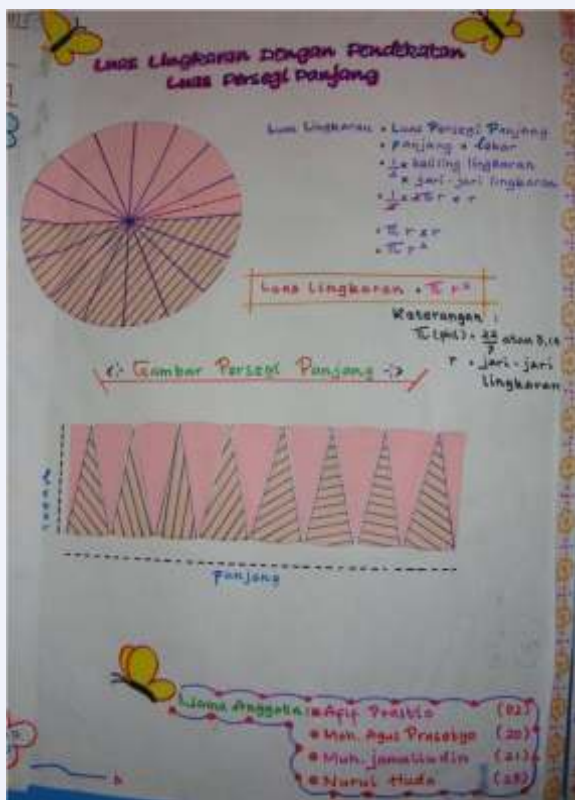 Luas Lingkaran Dengan Pendekatan
Luas Persegi Panjang
Luas Lingkaran = Luas Persegi Panjang
= Panjang × lebar
= 1/2 × keliling lingkaran
× jari-jari lingkaran
= 1/2 × 2πr × r
= π r × r
= π r²
Luas lingkaran = π r²
Keterangan :
π (phi) = 22/7 atau 3,14
r = jari-jari
lingkaran
Gambar Persegi Panjang
Lebar
Panjang
Nama Anggota : Afif Prastio (02)
Moh. Agus Prasetyo (20)
Muh. jamalludin (21)
Nurul Huda (23)
b